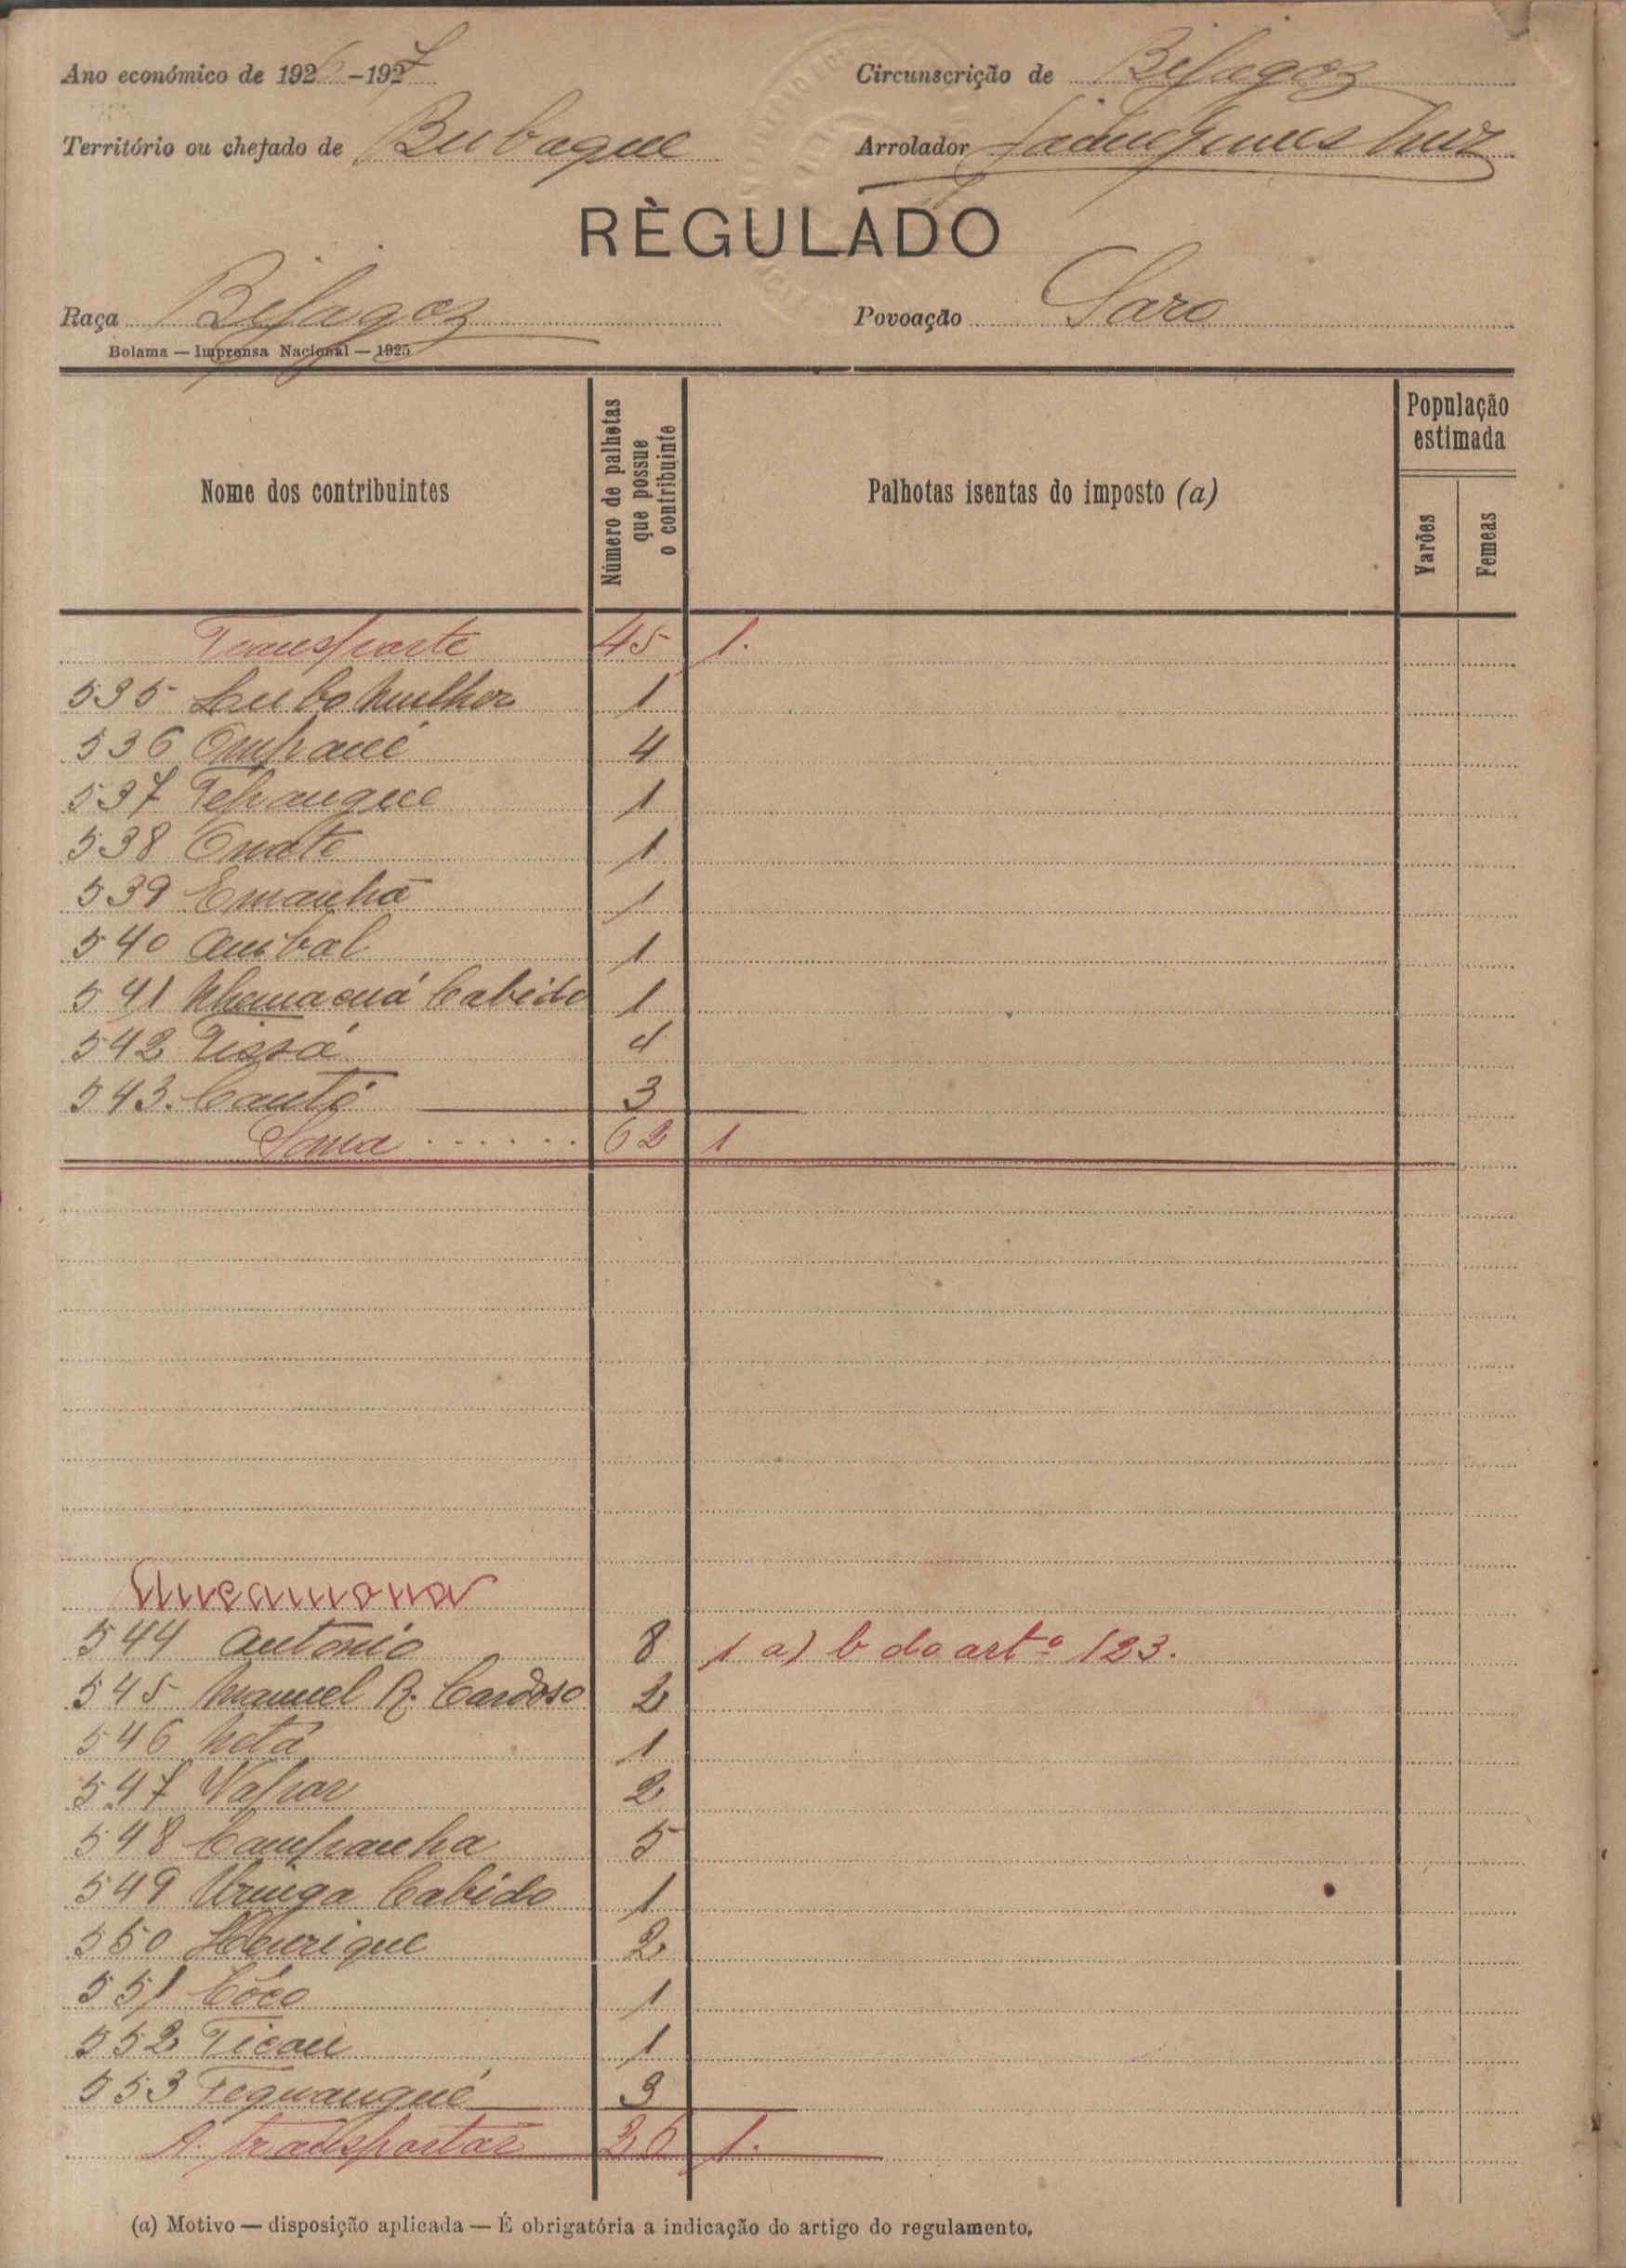 Ano económico de 1926-1927 Circunscrição de Bijagoz
Território ou chefado de Bubaque Arrolador
RÈGULADO
Raça Bijagoz Povoação Saro
Bolama — Imprensa Nacional — 1925
Nome dos contribuintes
Número de palhotas que possue o contribuinte
Palhotas isentas do imposto (a)
População estimada
Varões
Femeas
Transporte 45 1.
535 Mulher 1
536 Ompané 4
537 Tepangue 1
538 Onoto 1
539 Emanhã 1
540 Anibal 1
541 Cabido 1
542 Tissá 4
543. Cantó 3
Soma ...... 62 1
544 Antonio 8 1 a) b do artº 123.
545 Manuel R. Cardoso 2
546 Netá 1
547 Vapor 2
548 Campanha 5
549 Uringa Cabido 1
550 Henrique 2
551 Côco 1
552 Ticau 1
553 Tequangué 3
A transportar 26 1.
(a) Motivo — disposição aplicada — É obrigatória a indicação do artigo do regulamento.